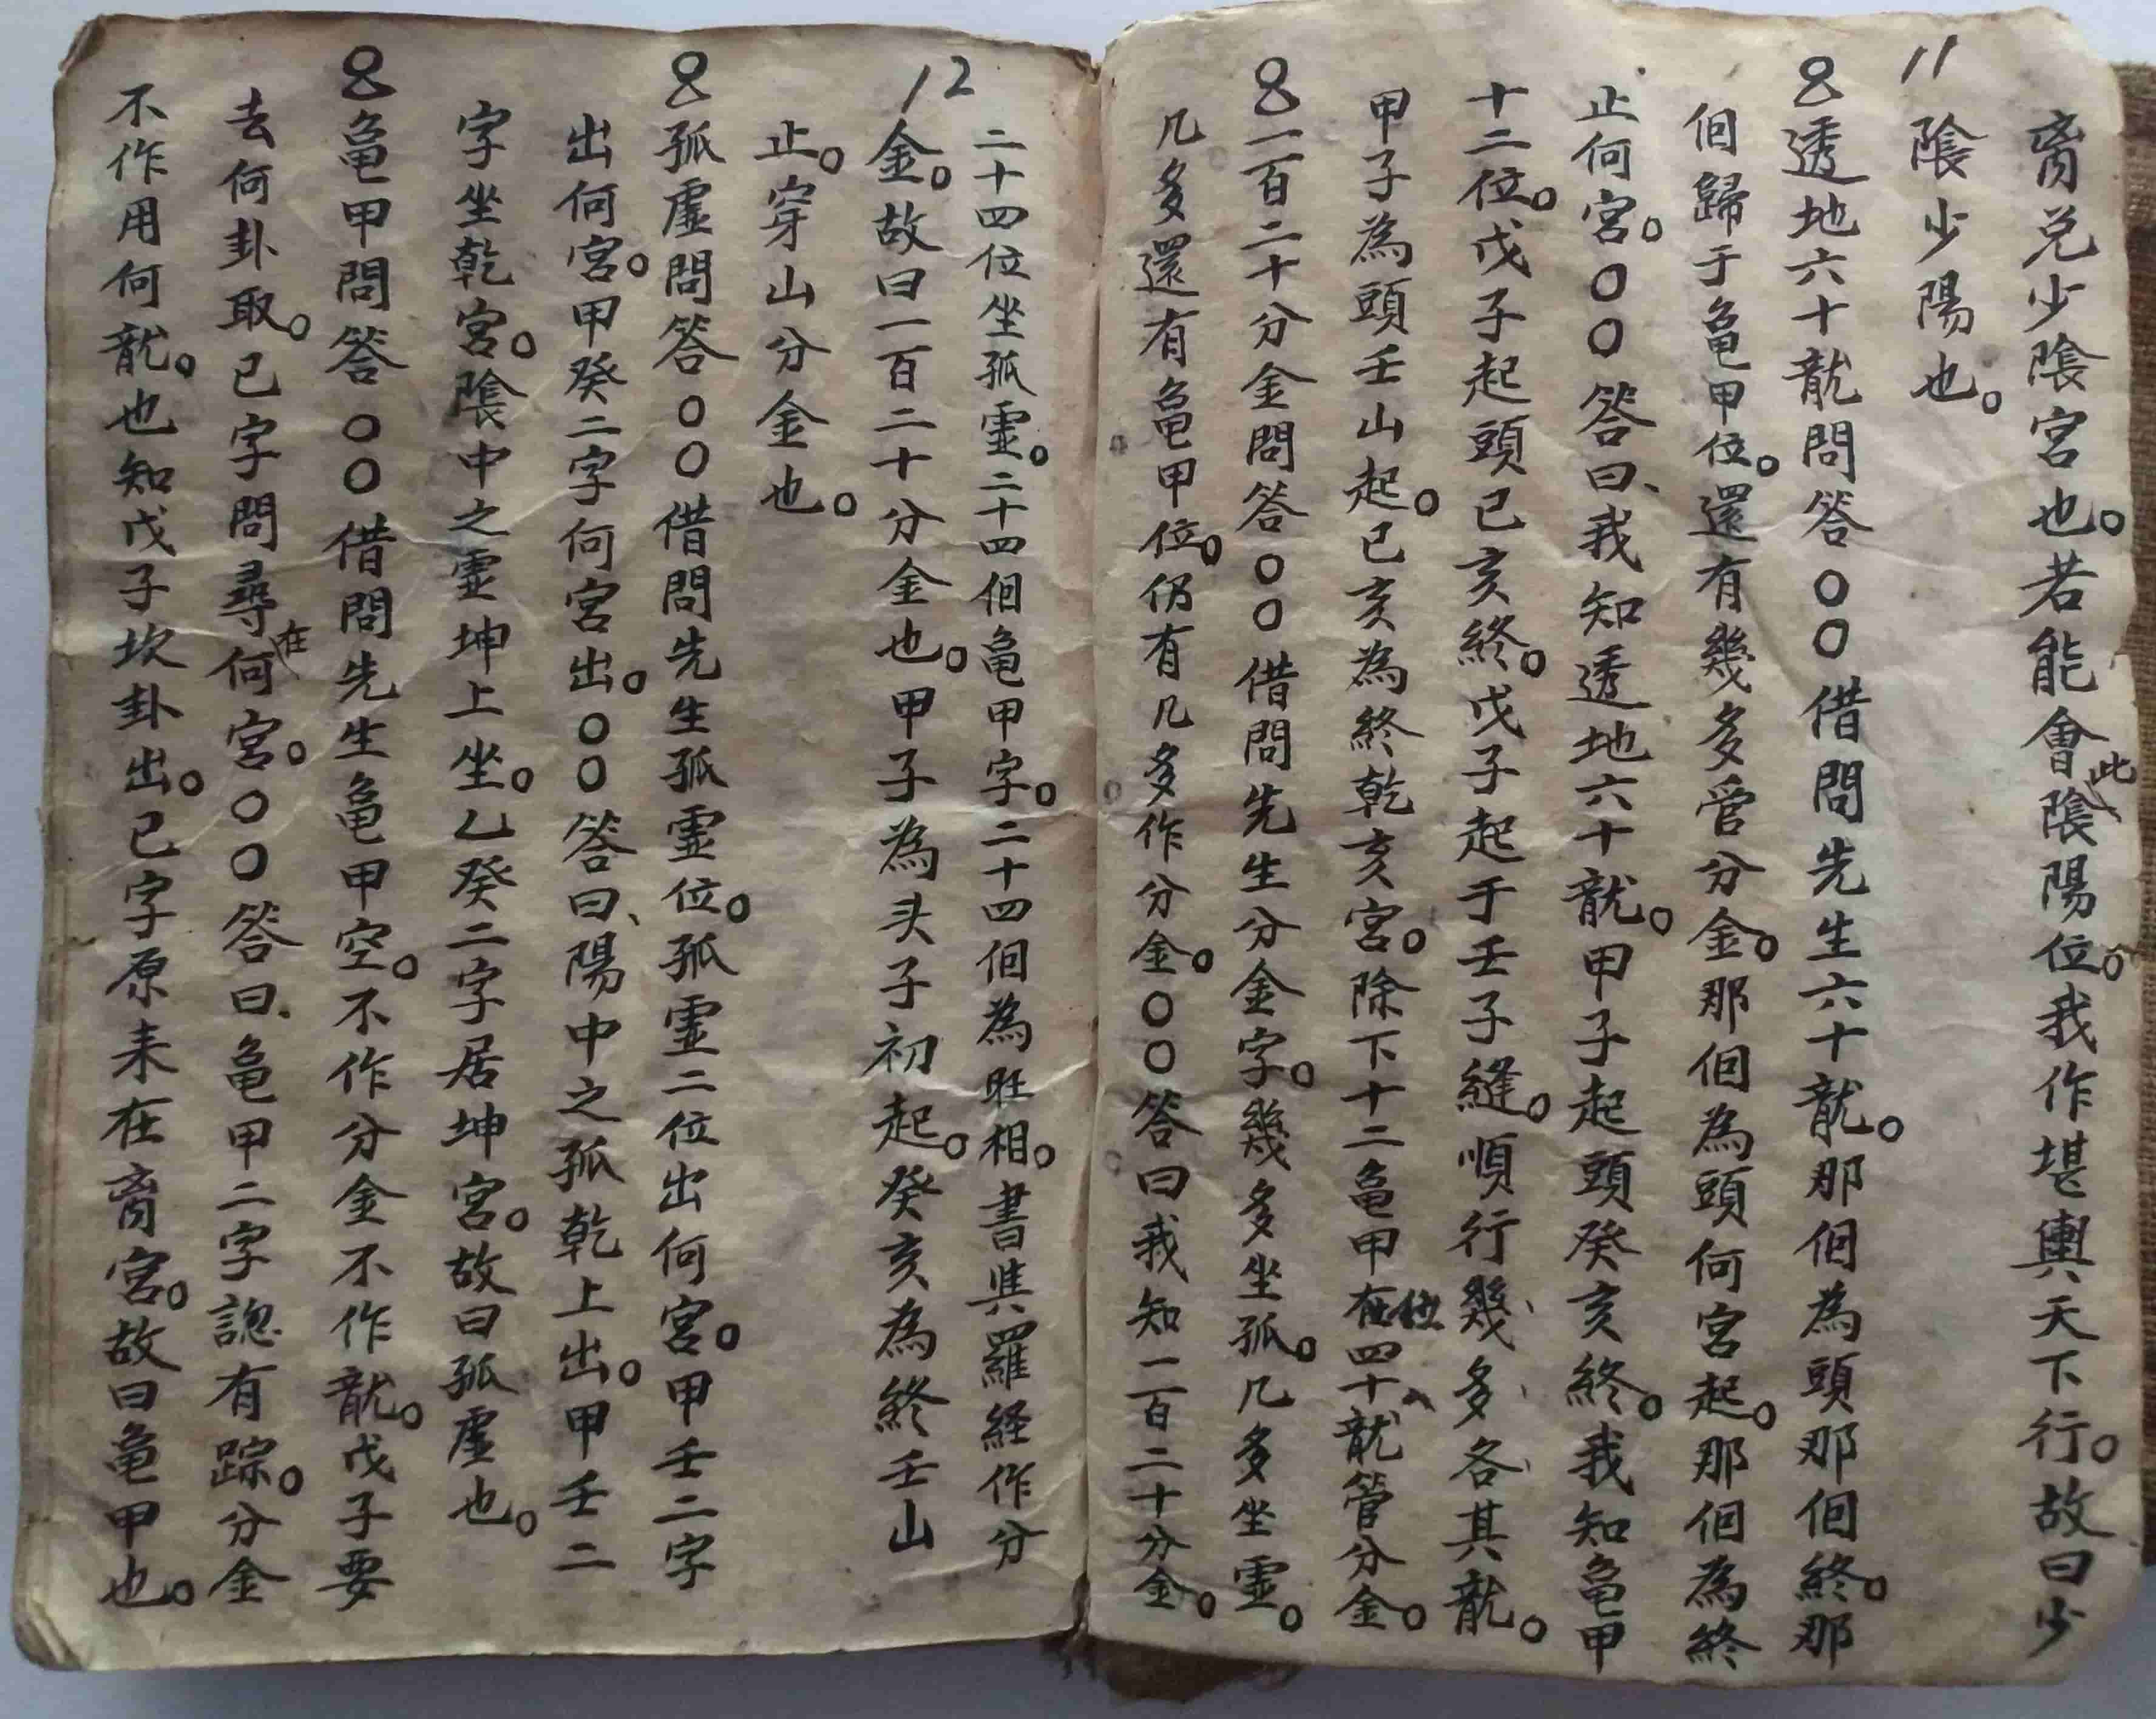 11
裔兑少隂宮也。若能會此隂陽位。我作堪輿天下行。故曰少
隂少陽也。
透地六十龍問答○○借問先生六十龍。那個為頭那個終。那
個歸于龜甲位。還有幾多管分金。那個為頭何宮起。那個為終
止何宮。○○答曰、我知透地六十龍。甲子起頭癸亥終。我知龜甲
十二位。戊子起頭已亥終。戊子起于壬子縫。順行幾多各其龍。
甲子為頭壬山起。已亥為終乾亥宮。除下十二龜甲位四十龍管分金。
一百二十分金問答○○借問先生分金字。幾多坐孤。几多坐霊。
几多還有龜甲位。仍有几多作分金。○○答曰我知一百二十分金。
12
二十四位坐孤霊。二十四個龜甲字。二十四個為旺相。書具羅経作分
金。故曰一百二十分金也。甲子為头子初起。癸亥為終壬山
止。穿山分金也。
孤虛問答○○借問先生孤霊位。孤霊二位出何宮。甲壬二字
出何宮。甲癸二字何宮出。○○答曰、陽中之孤乾上出。甲壬二
字坐乾宮。隂中之霊坤上坐。乙癸二字居坤宮。故曰孤虛也。
龜甲問答○○借問先生龜甲空。不作分金不作龍。戊子要
去何卦取。已字問尋在何宮。○○答曰、龜甲二字認有踪。分金
不作用何龍。也知戊子坎卦出。已字原来在裔宮。故曰龜甲也。